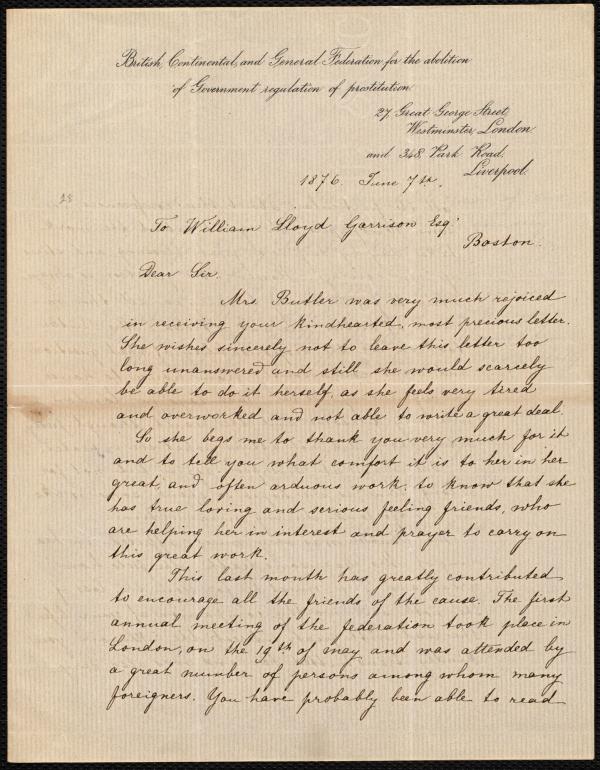 British, Continental, and General Federation for the abolition
of Government regulation of prostitution
27, Great George Street,
Westminster, London
and 348, Park Road,
Liverpool.
1876. June 7th.
To William Lloyd Garrison Esq.
Boston.
Dear Sir.
Mrs. Butler was very much rejoiced
in receiving your kindhearted, most precious letter.
She wishes sincerely not to leave this letter too
long unanswered and still she would scarsely
be able to do it herself, as she feels very tired
and overworked and not able to write a great deal.
So she begs me to thank you very much for it
and to tell you what comfort it is to her in her
great, and often arduous work, to know that she
has true loving and serious feeling friends, who
are helping her in interest and prayer to carry on
this great work.
This last month has greatly contributed
to encourage all the friends of the cause. The first
annual meeting of the federation took place in
London, on the 19th of may and was attended by
a great number of persons among whom many
foreigners. You have probably been able to read